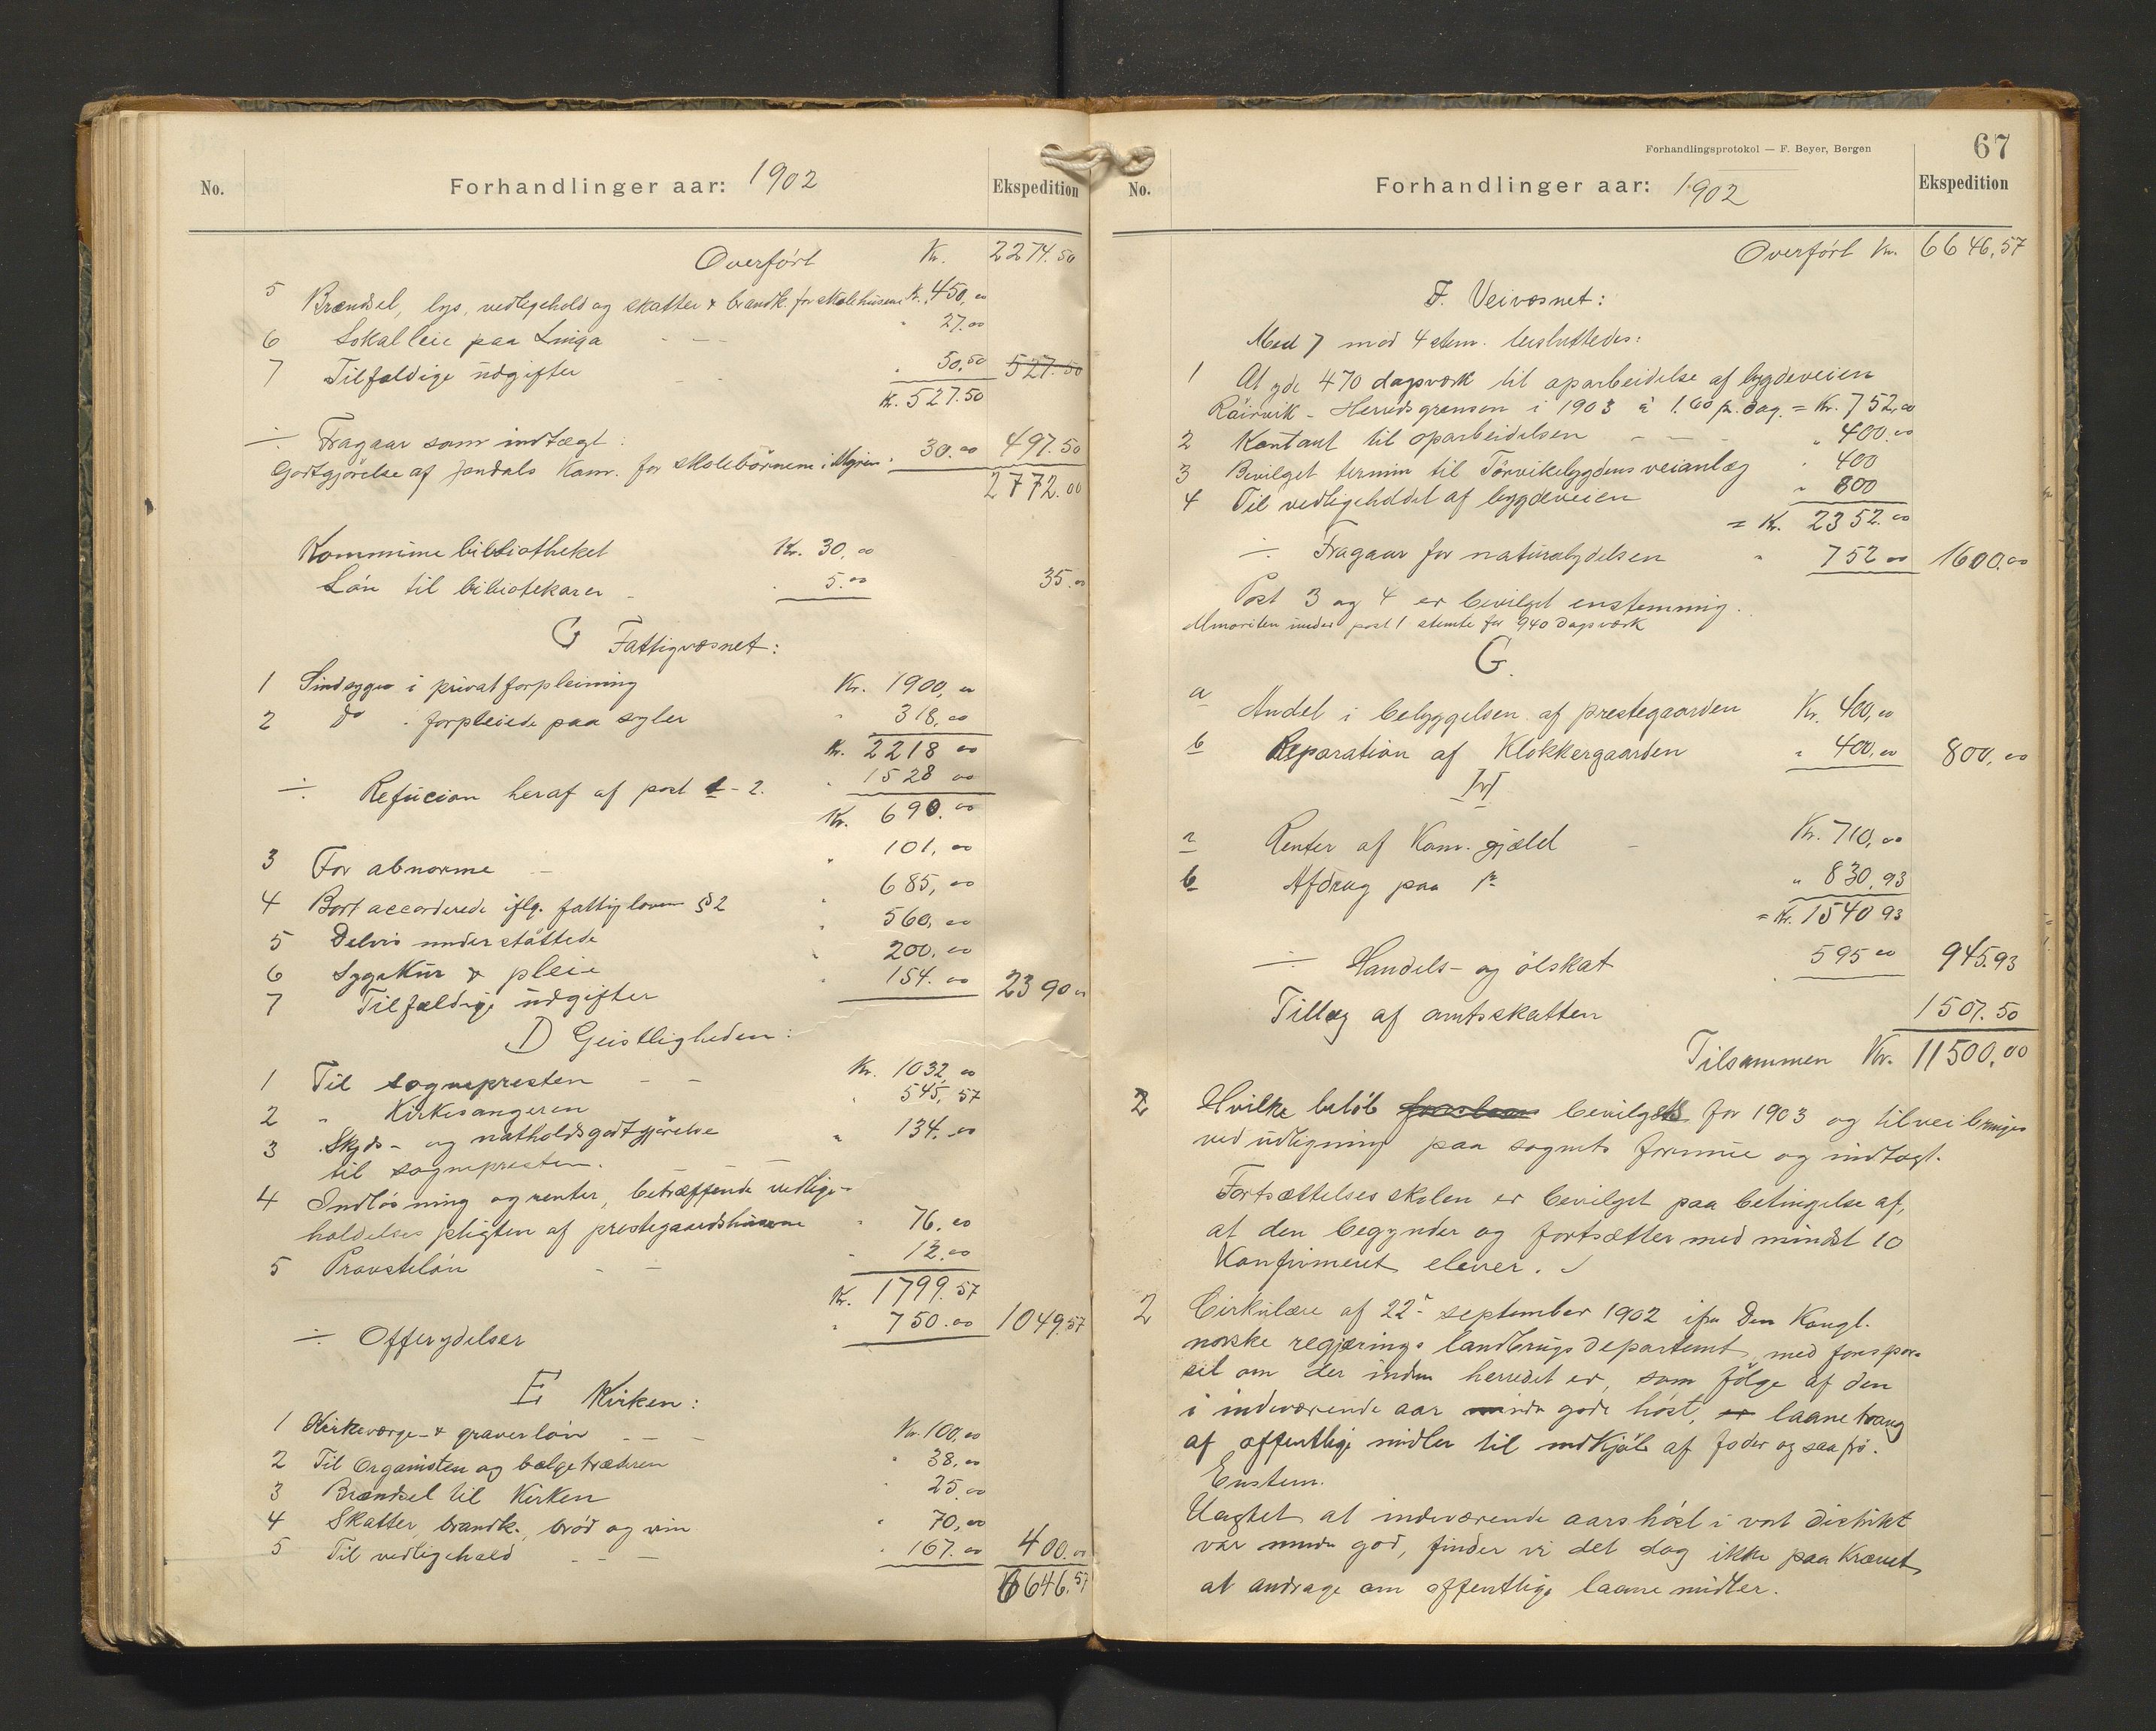 No. Forhandlinger aar: 1902 Ekspedition
Overført Kr. 2274.50
5 Brændsel, lys, vedligehold og skatter & brandk. for skolehusene Kr. 450,00
6 Lokalleie paa Linga - - " 27.00
7 Tilfældige udgifter - - " 50,50 527.50
Kr. 527.50
÷ Fragaar som indtægt:
Godtgjörelse af Jondals Kom. for skolebörnene i " 30.00 497.50
2772.00
Kommunebibliotheket Kr. 30,00
Lön til bibliotekaren - " 5.00 35.00
C Fattigvæsnet:
1 Sindsyge i privatforpleining Kr. 1900,00
2 Do " forpleiede paa syler " 318,00
Kr. 2218 00
÷ Refucion heraf af post 1-2. " 1528 00
Kr. 690.00
3 For abnorme - " 101,00
4 Bortaccorderede iflg. fattigloven § 2 " 685,00
5 Delvis understöttede " 560,00
6 Sygekur & pleie " 200,00
7 Tilfældige udgifter " 154.00 2390 00
D Geistligheden:
1 Til sognepresten - - Kr. 1032,00
2 " Kirkesangeren " 545,57
3 Skyds- og natholdsgodtgjörelse " 134.00
til sognepresten.
4 Indlösning og renter, betræffende vedlige-
holdelses pligten af prestegaardshusene " 76.00
5 Provstelön - - " 12.00
Kr. 1799.57
÷ Offerydelser " 750.00 1049.57
E Kirken:
1 Kirkeværge- & graverlön - - Kr. 100,00
2 Til Organisten og bælgetræderen " 38,00
3 Brændsel til Kirken " 25,00
4 Skatter, brandk., bröd og vin " 70,00
5 Til vedligehold - - " 167.00 400.00
6646.57
Forhandlingsprotokol — F. Beyer, Bergen
67
No. Forhandlinger aar: 1902 Ekspedition
Overført Kr. 6646,57
F. Veivæsnet:
Med 7 mod 4 stem. besluttedes:
1 At yde 470 dagsværk til oparbeidelse af bygdeveien
- Herredsgrænsen i 1903 à 1.60 pr. dag. = Kr. 752,00
2 Kontant til oparbeidelsen - - " 400.00
3 Bevilget termin til Törvikebygdens veianlæg " 400
4 Til vedligeholdet af bygdeveien " 800
= Kr. 2352.00
÷ Fragaar for naturalydelsen " 752 00 1600.00
Post 3 og 4 er bevilget enstemmig.
Minoriten under post 1 stemte for 940 dagsværk
G.
a Andel i bebyggelsen af prestegaarden Kr. 400,00
b Reparation af Klokkergaarden " 400,00 800,00
H
a Renter af Kom. gjæld - Kr. 710,00
b Afdrag paa do " 830,93
= Kr. 1540 93
÷ Handels- og ölskat 595 00 945.93
Tillæg af amtsskatten 1507.50
Tilsammen Kr. 11500,00
2 Hvilke belöb bevilgedes for 1903 og tilveibringes
ved udligning paa sognets formue og indtægt.
Fortsættelsesskolen er bevilget paa betingelse af,
at den begynder og fortsætter med mindst 10
Konfirmeret elever.
2 Cirkulære af 22de september 1902 ifra Den Kongl.
norske regjærings landbrugsdepartemt, med forespør-
sel om der inden herredet er, som følge af den
i indeværende aar mindre gode höst, er laanetrang
af offentlige midler til indkjöb af foder og saafrö.
Enstem.
Uagtet at indeværende aars höst i vort distrikt
var mindre god, finder vi det dog ikke paakrævet
at andrage om offentlige laanemidler.